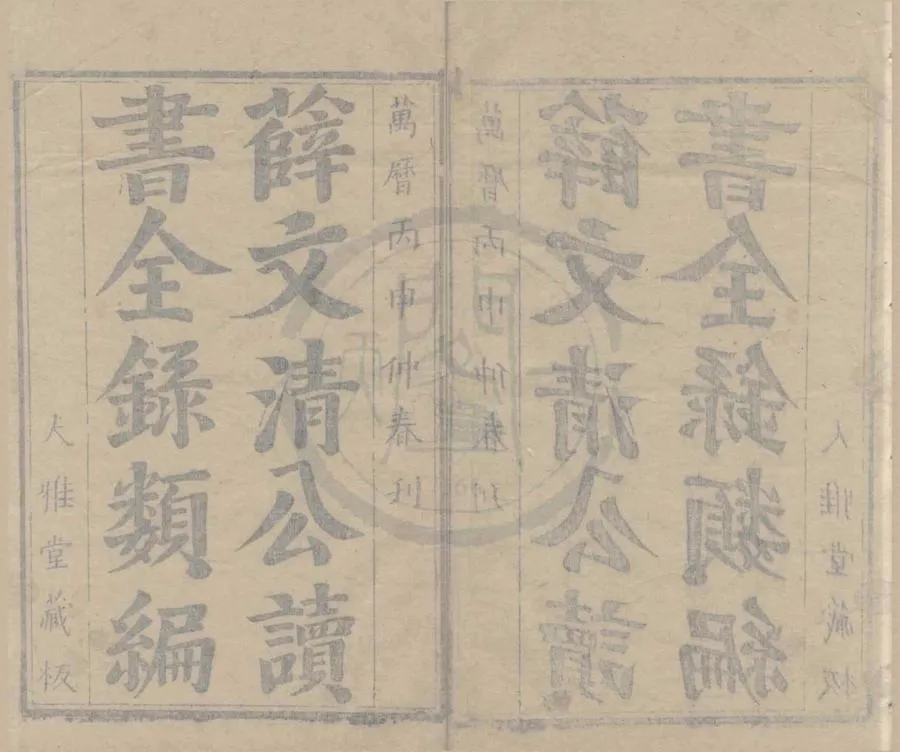 萬曆丙申仲春刊
薛文清公讀
書全錄類編
大雅堂藏板